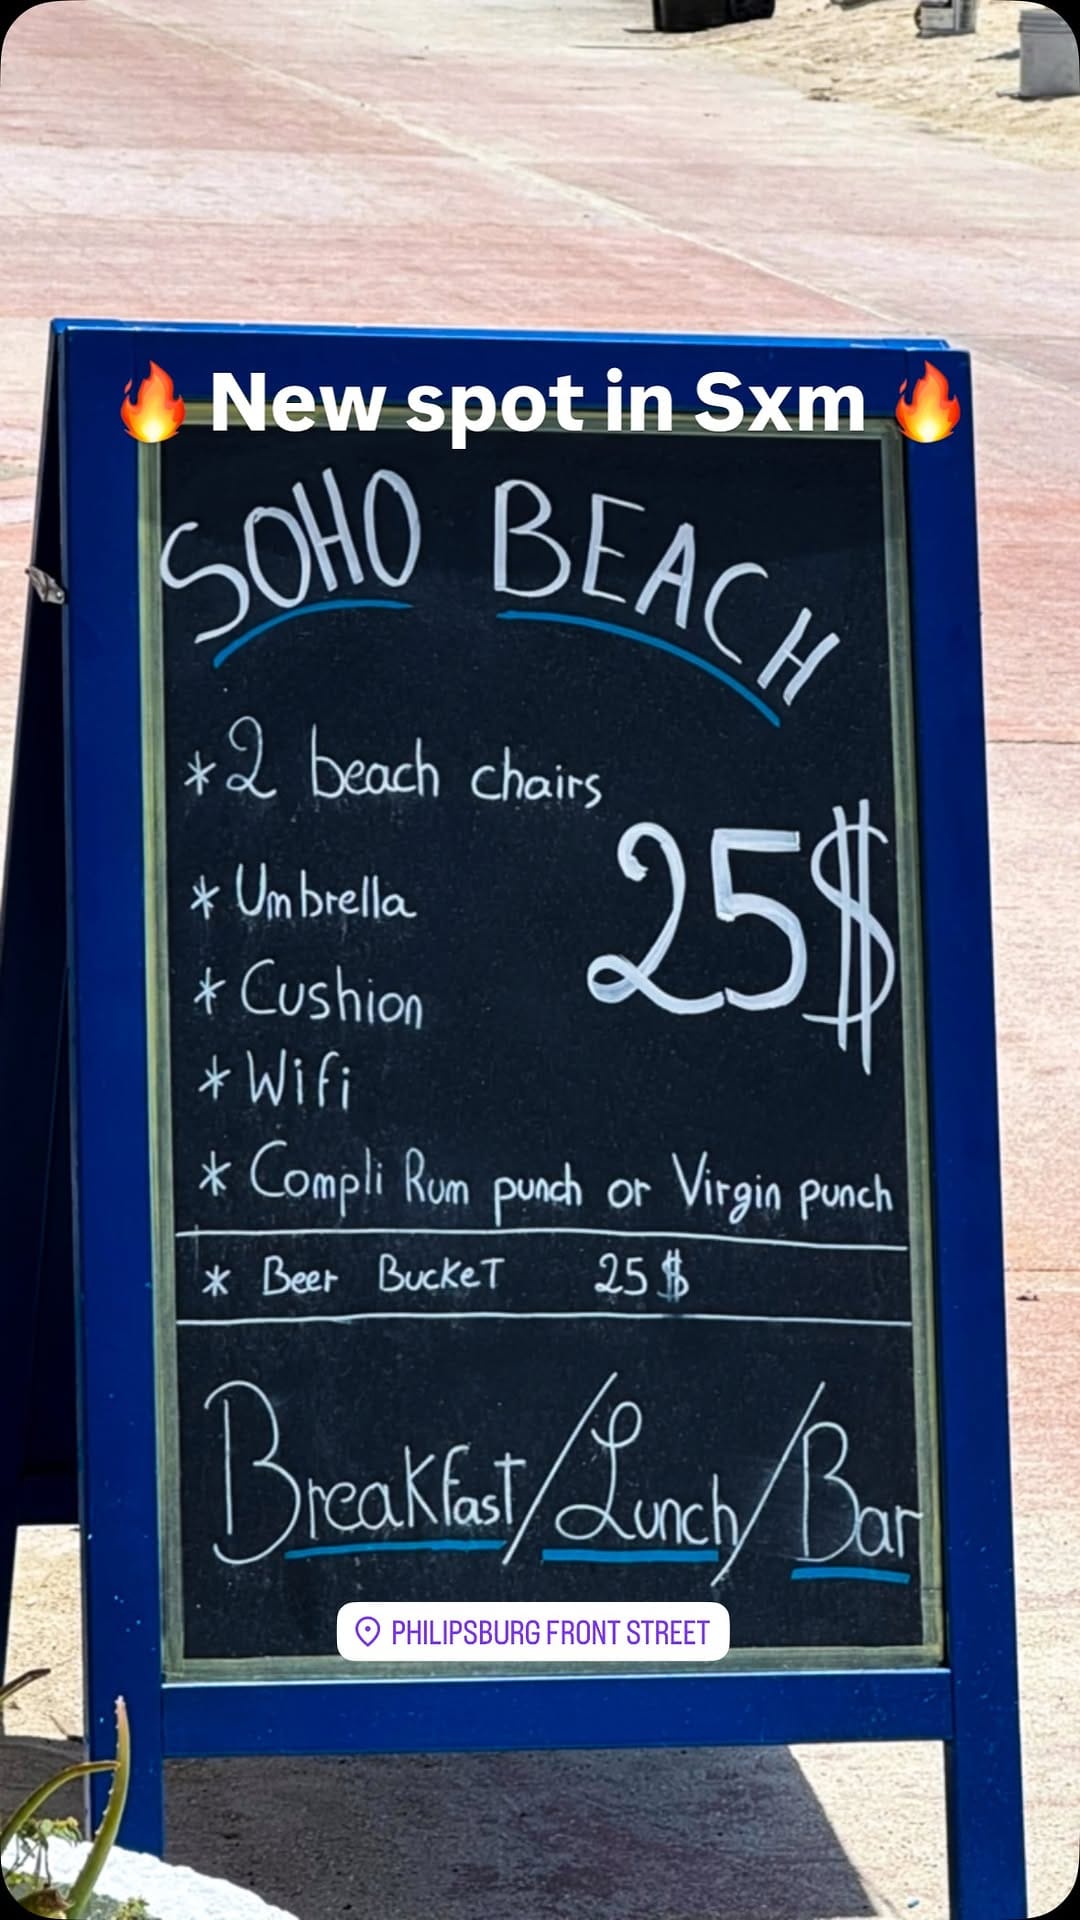 🔥 New spot in Sxm 🔥
SOHO BEACH
* 2 beach chairs
25$
* Umbrella
* Cushion
* Wifi
* Compli Rum punch or Virgin punch
* Beer BuckeT 25$
Breakfast/Lunch/Bar
PHILIPSBURG FRONT STREET